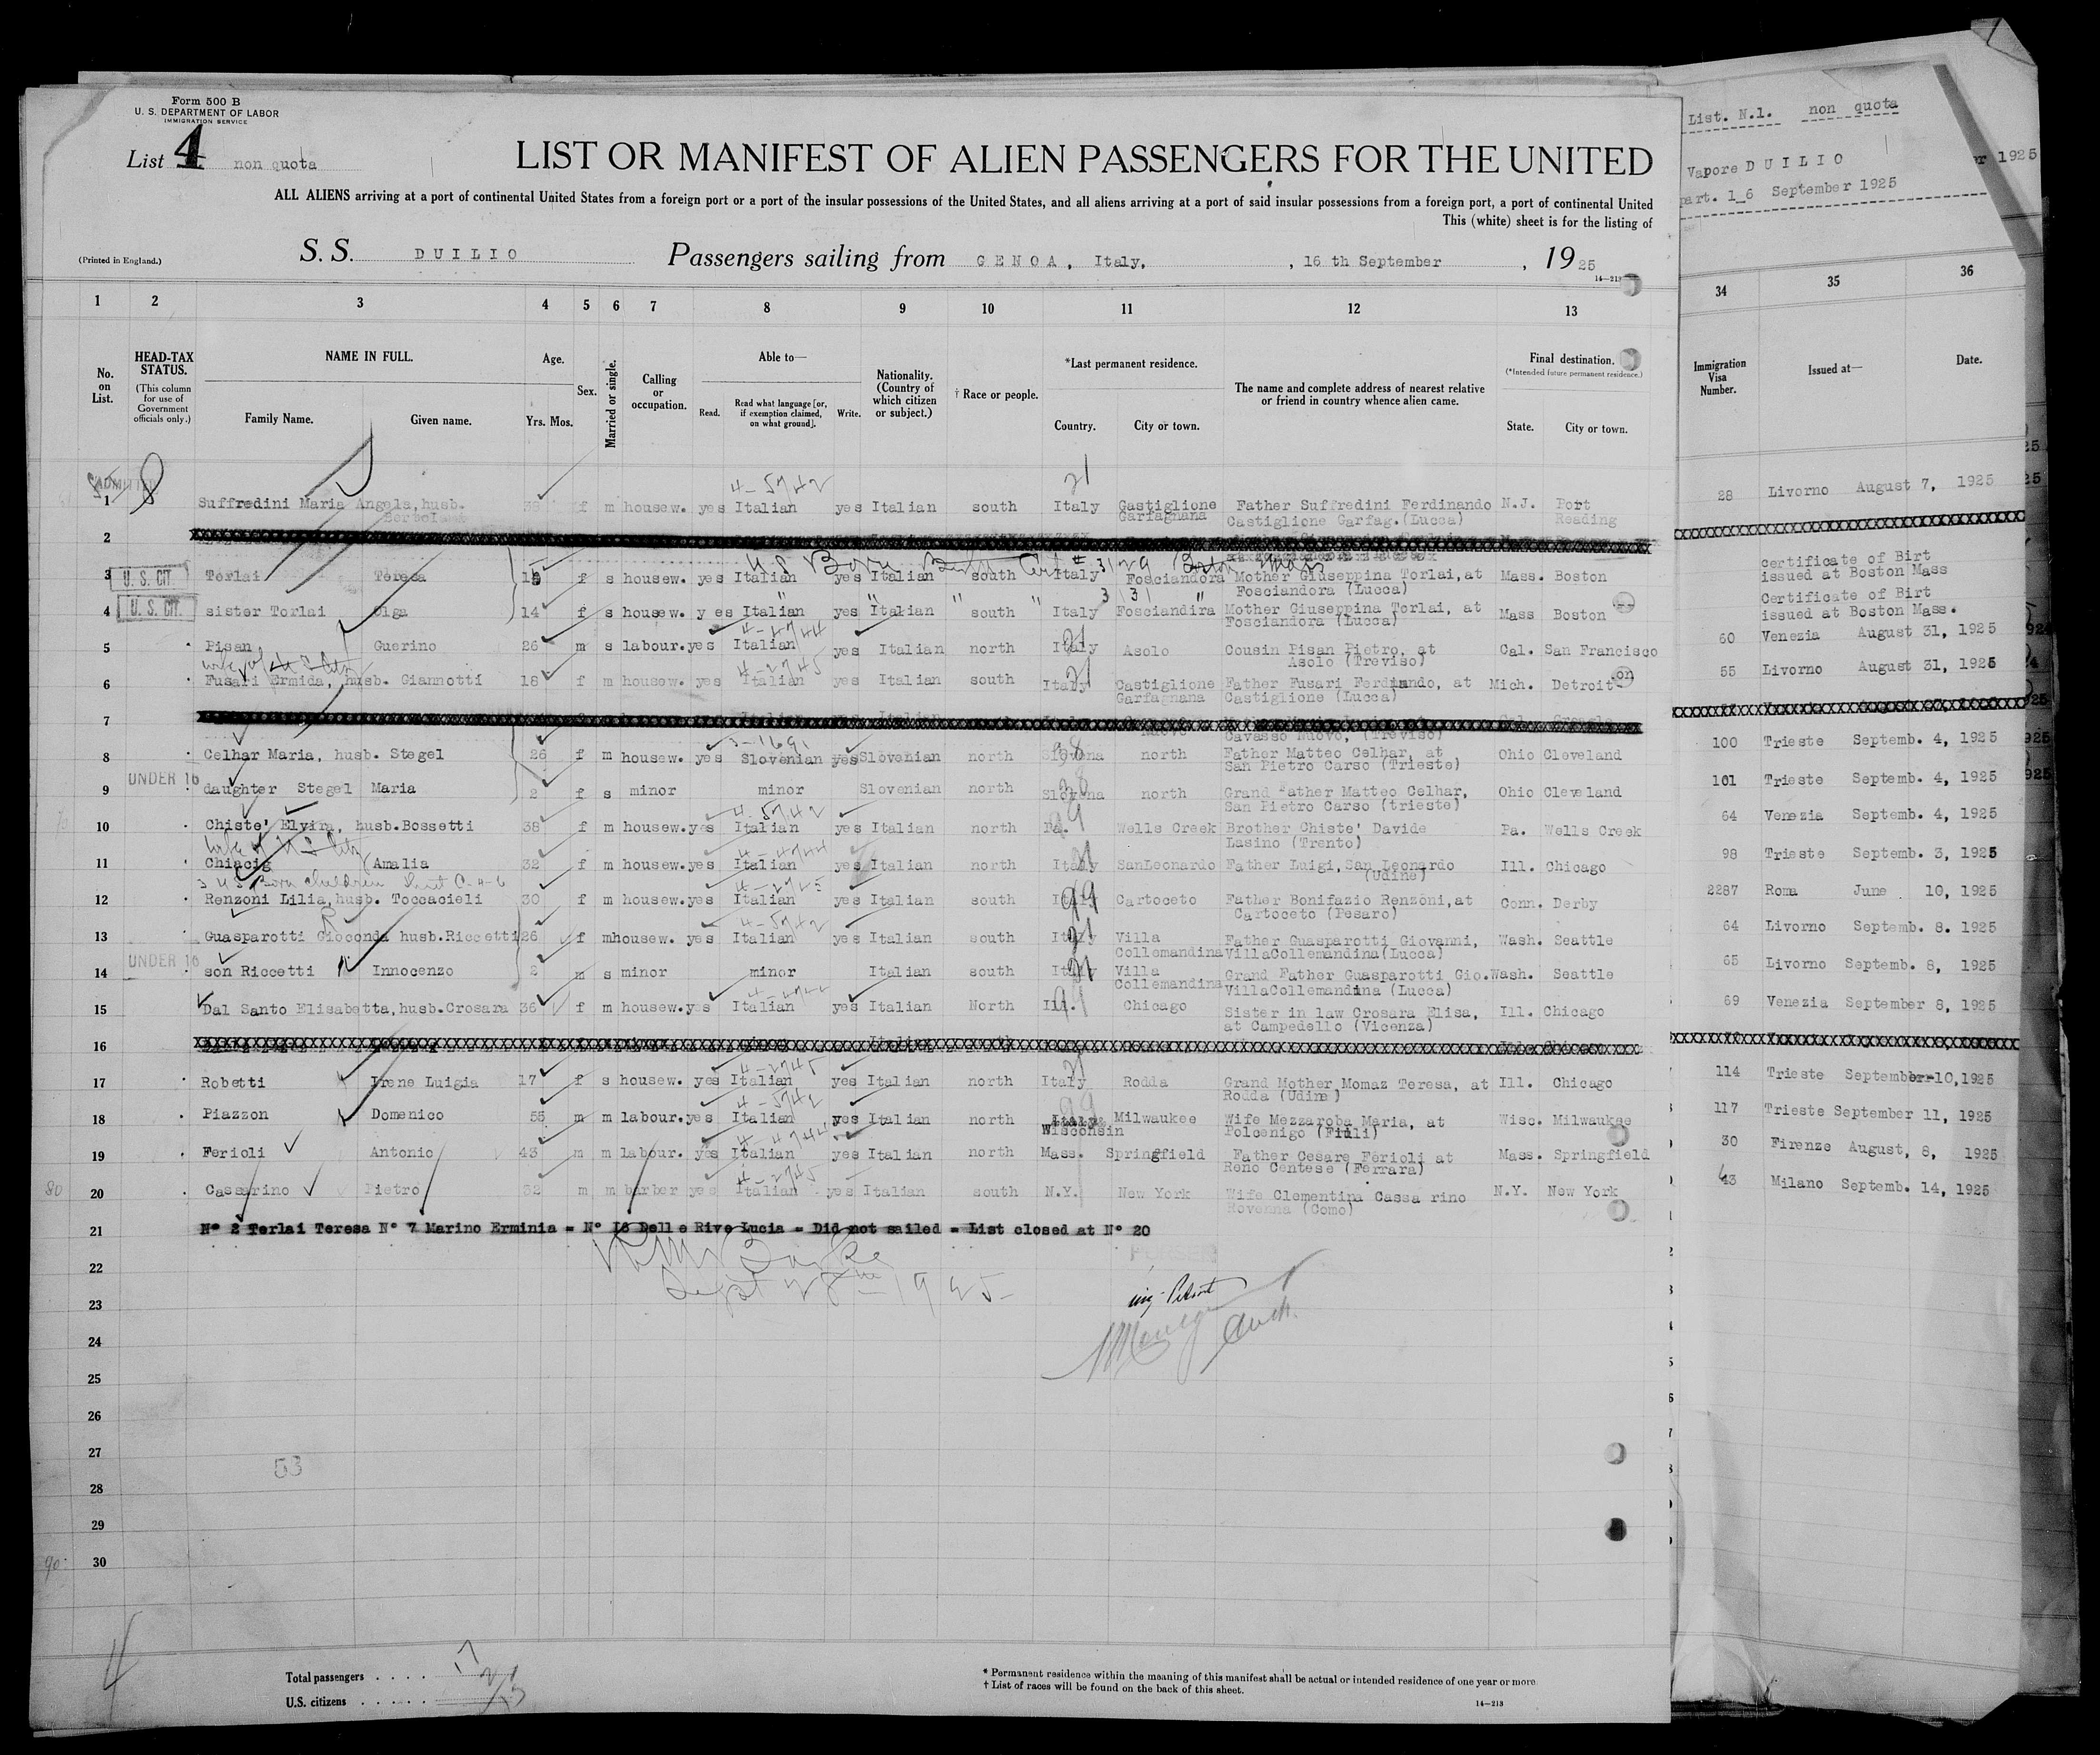 Form 500 B
U. S. DEPARTMENT OF LABOR
IMMIGRATION SERVICE
List 4 non quota
LIST OR MANIFEST OF ALIEN PASSENGERS FOR THE UNITED
ALL ALIENS arriving at a port of continental United States from a foreign port or a port of the insular possessions of the United States, and all aliens arriving at a port of said insular possessions from a foreign port, a port of continental United
This (white) sheet is for the listing of
(Printed in England.)
S. S. DUILIO Passengers sailing from GENOA, Italy, , 16 th September , 1925
14—213
1 2 3 4 5 6 7 8 9 10 11 12 13
No. on List.
HEAD-TAX STATUS.
(This column for use of Government officials only.)
NAME IN FULL.
Family Name. Given name.
Age.
Yrs. Mos.
Sex.
Married or single.
Calling or occupation.
Able to—
Read. Read what language [or, if exemption claimed, on what ground]. Write.
Nationality. (Country of which citizen or subject.)
† Race or people.
*Last permanent residence.
Country. City or town.
The name and complete address of nearest relative or friend in country whence alien came.
Final destination.
(*Intended future permanent residence.)
State. City or town.
ADMITTED
4-5742 21
1 Suffredini Maria Angela, husb. 38 f m housew. yes Italian yes Italian south Italy Castiglione Garfagnana Father Suffredini Ferdinando Castiglione Garfag.(Lucca) N.J. Port Reading
2
US Born Birth Cert # 3129 Boston Mass
3 U. S. CIT. Torlai Teresa f s housew. yes Italian yes Italian south Italy Fosciandora Mother Giuseppina Torlai, at Fosciandora (Lucca) Mass. Boston
" " " " 3131 "
4 U. S. CIT. sister Torlai Olga 14 f s housew. y es Italian yes Italian south Italy Fosciandira Mother Giuseppina Torlai, at Fosciandora (Lucca) Mass Boston
4-4744 21
5 Pisan Guerino 26 m s labour. yes Italian yes Italian north Italy Asolo Cousin Pisan Pietro, at Asolo (Treviso) Cal. San Francisco
wife of U S Citz 4-2745 21
6 Fusari Ermida, husb. Giannotti 18 f m housew. yes Italian yes Italian south Italy Castiglione Garfagnana Father Fusari Ferdinando, at Castiglione (Lucca) Mich. Detroit
7 Cavasso Nuovo, (Treviso)
3-1691
8 Celhar Maria, husb. Stegel 26 f m housew. yes Slovenian yes Slovenian north Slovena north Father Matteo Celhar, at San Pietro Carso (Trieste) Ohio Cleveland
UNDER 16
9 daughter Stegel Maria 2 f s minor minor Slovenian north Slovena north Grand Father Matteo Celhar, San Pietro Carso (trieste) Ohio Cleveland
4-5742
10 Chiste' Elvira, husb.Bossetti 38 f m housew. yes Italian yes Italian north Pa. Wells Creek Brother Chiste' Davide Lasino (Trento) Pa. Wells Creek
wife of U S Citz 4-4744
11 Chiacig Amalia 32 f m housew. yes Italian yes Italian north Italy SanLeonardo Father Luigi, San Leonardo (Udine) Ill. Chicago
3 U S Born children 4-2725
12 Renzoni Lilia, husb. Toccacieli 30 f m housew. yes Italian yes Italian south Italy Cartoceto Father Bonifazio Renzoni, at Cartoceto (Pesaro) Conn. Derby
4-5742
13 Guasparotti Gioconda husb.Riccetti 26 f m housew. yes Italian yes Italian south Italy Villa Collemandina Father Guasparotti Giovanni, VillaCollemandina(Lucca) Wash. Seattle
UNDER 16
14 son Riccetti Innocenzo 2 m s minor minor Italian south Italy Villa Collemandina Grand Father Guasparotti Gio. VillaCollemandina (Lucca) Wash. Seattle
15 Dal Santo Elisabetta, husb.Crosara 36 f m housew. yes Italian yes Italian North Ill. Chicago Sister in law Crosara Elisa, at Campedello (Vicenza) Ill. Chicago
16
4-2745 21
17 Robetti Irene Luigia 17 f s housew. yes Italian yes Italian north Italy Rodda Grand Mother Momaz Teresa, at Rodda (Udine) Ill. Chicago
4-5742
18 Piazzon Domenico 55 m m labour. yes Italian yes Italian north Wisconsin Milwaukee Wife Mezzaroba Maria, at Polcenigo Wisc. Milwaukee
4-4744
19 Ferioli Antonio 43 m m labour. yes Italian yes Italian north Mass. Springfield Father Cesare Ferioli at Reno Centese (Ferrara) Mass. Springfield
4-2745
80 20 Cassarino Pietro 32 m m barber yes Italian yes Italian south N.Y. New York Wife Clementina Cassa rino Rovenna (Como) N.Y. New York
21 N° 2 Terlai Teresa N° 7 Marino Erminia = N° 16 Delle Rive Lucia = Did not sailed = List closed at N° 20
22
Sept 28th 1925
PURSER
23
24
25
26
27
53
28
29
90 30
Total passengers . . . . 17
U.S. citizens . . . . . .
* Permanent residence within the meaning of this manifest shall be actual or intended residence of one year or more
† List of races will be found on the back of this sheet.
14—213
List. N.1. non quota
Vapore DUILIO
part. 16 September 1925
34 35 36
Immigration Visa Number. Issued at— Date.
28 Livorno August 7, 1925
certificate of Birt issued at Boston Mass
Certificate of Birt issued at Boston Mass.
60 Venezia August 31, 1925
55 Livorno August 31, 1925
100 Trieste Septemb. 4, 1925
101 Trieste Septemb. 4, 1925
64 Venezia Septemb. 4, 1925
98 Trieste Septemb. 3, 1925
2287 Roma June 10, 1925
64 Livorno Septemb. 8. 1925
65 Livorno Septemb. 8, 1925
69 Venezia September 8, 1925
114 Trieste September 10,1925
117 Trieste September 11, 1925
30 Firenze August, 8, 1925
43 Milano Septemb. 14, 1925